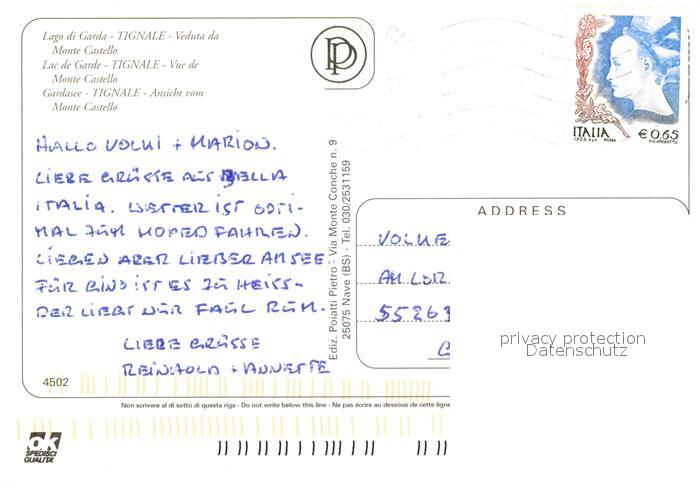 Lago di Garda - TIGNALE - Veduta da
Monte Castello
Lac de Garde - TIGNALE - Vue de
Monte Castello
Gardasee - TIGNALE - Ansicht vom
Monte Castello
PP
ITALIA
€ 0,65
I.P.Z.S. S.p.A. ROMA
HALLO VOLKI + MARION.
LIEBE GRÜSSE AUS BELLA
ITALIA. WETTER IST OPTI-
MAL ZUM MOPED FAHREN.
LIEGEN ABER LIEBER AM SEE.
FÜR GINO IST ES ZU HEISS-
DER LIEGT NUR FAUL RUM.
LIEBE GRÜSSE
REINHOLD + ANNETTE
4502
Ediz. Poiatti Pietro - Via Monte Conche n. 9
25075 Nave (BS) - Tel. 030/2531159
ADDRESS
VOLKE
AM
55263
privacy protection
Datenschutz
Non scrivere al di sotto di questa riga - Do not write below this line - Ne pas écrire au dessous de cette ligne
ok
SPEDISCI
QUALITÀ